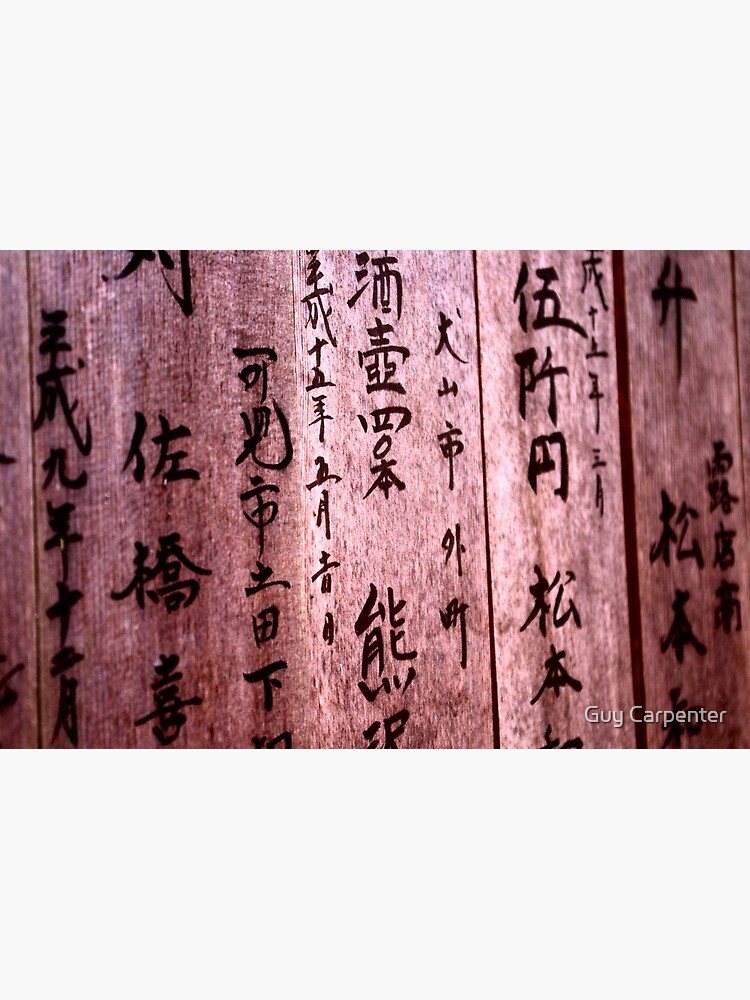 升
露店商
松本和
成十五年三月
伍阡円
松本和
犬山市 外町
酒壺四〇本
熊沢
平成十五年五月吉日
可児市土田下切
対
佐橋喜
平成九年十二月
Guy Carpenter